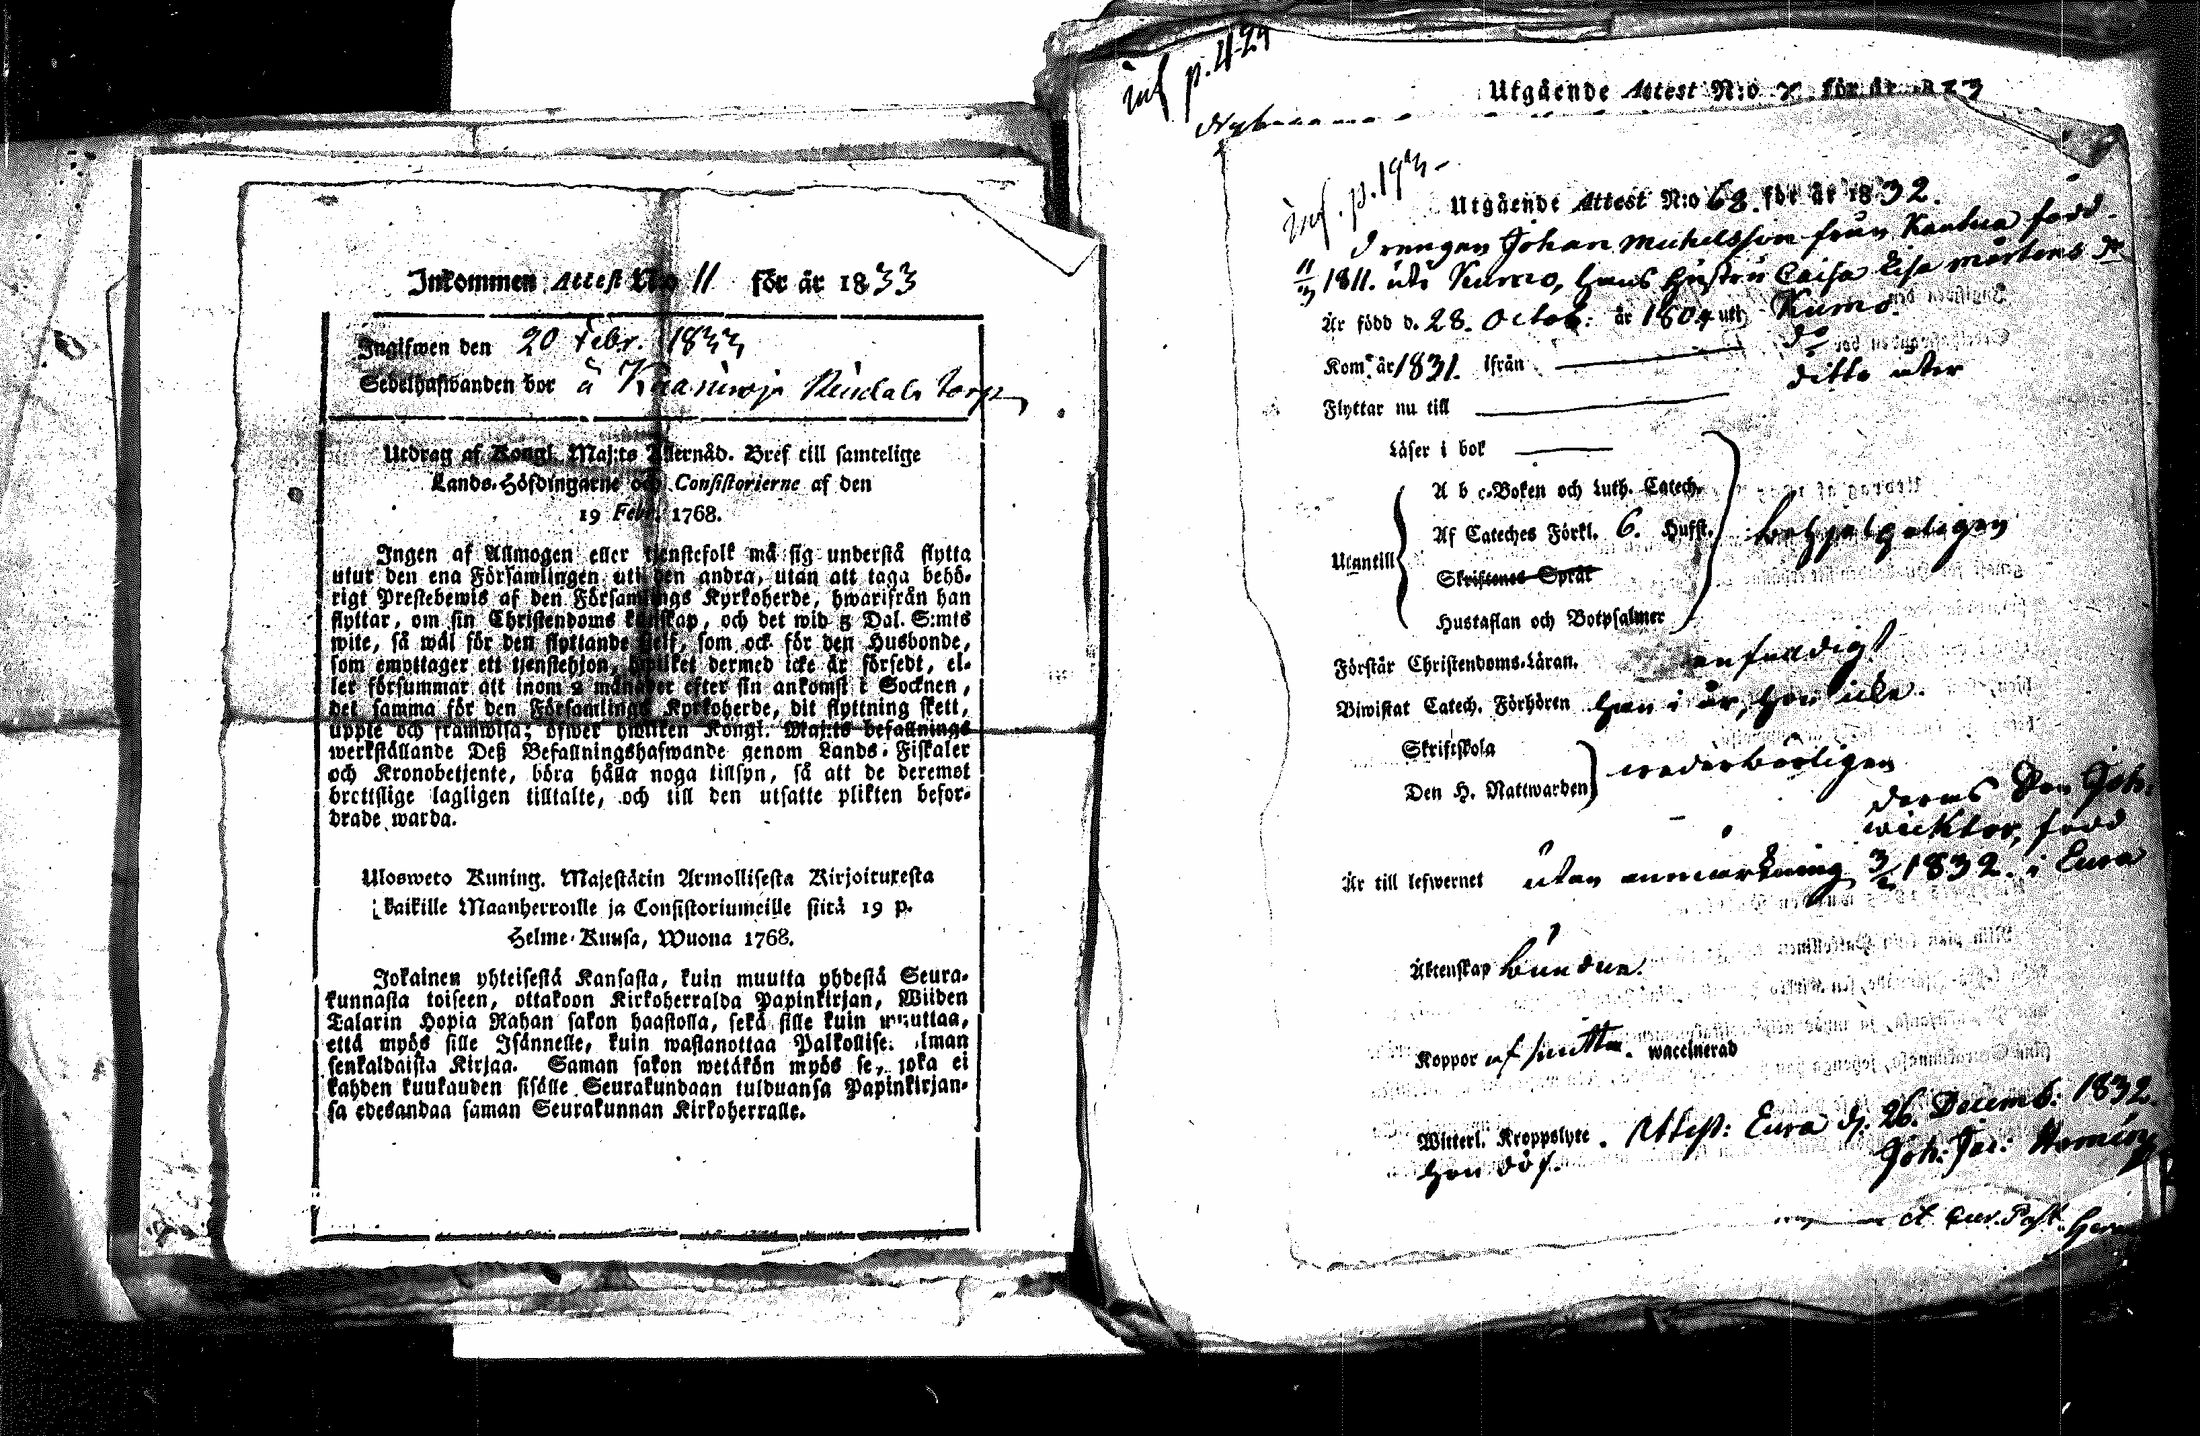 Inkommen Attest No 11 för är 1833
Ingifwen den 20 Febr. 1833
Sedelhafwanden bor å
Utdrag af Kongl. Maj:ts Allernåd. Bref till samtelige
Lands-Höfdingarne och Consistorierne af den
19 Febr. 1768.
Ingen af Allmogen eller tjenstefolk må sig understå flytta
utur den ena Församlingen uti den andra, utan att taga behö-
rigt Prestebewis af den Församlings Kyrkoherde, hwarifrån han
flyttar, om sin Christendoms kunskap, och det wid 5 Dal. S:mts
wite, så wäl för den flyttande sielf, som ock för den Husbonde,
som emottager ett tjenstehjon, hwilket dermed icke är försedt, el-
ler försummar att inom 2 månader efter sin ankomst i Socknen,
det samma för den Församlings Kyrkoherde, dit flyttning skett,
uppte och framwisa; öfwer hwilken Kongl. Maj:ts befallnings
werkställande Deß Befallningshafwande genom Lands-Fiskaler
och Kronobetjente, böra hålla noga tillsyn, så att de deremot
brottslige lagligen tilltalte, och till den utsatte plikten befor-
drade warda.
Ulosweto Kuning. Majestätin Armollisesta Kirjoituxesta
kaikille Maanherroille ja Consistoriumeille siitä 19 p.
Helme-Kuusa, Wuona 1768.
Jokainen yhteisestä Kansasta, kuin muutta yhdestä Seura-
kunnasta toiseen, ottakoon Kirkoherralda Papinkirjan, Wiiden
Talarin Hopia Rahan sakon haastolla, sekä sille kuin muuttaa,
että myös sille Isännelle, kuin wastanottaa Palkollise. ilman
senkaldaista Kirjaa. Saman sakon wetäkön myös se, joka ei
kahden kuukauden sisälle Seurakundaan tulduansa Papinkirjan-
sa edesandaa saman Seurakunnan Kirkoherralle.
inf p. 429
Utgående Attest N:o för år
inf. p. 193
Utgående Attest N:o 68. för år 1832.
Drengen Johan Michelsson från Kautua född
11/3 1811. uti Kumo, hans hustru Caisa Lisa Mårtens dr
Är född d. 28. Octob: år 1804 uti Kumo.
Kom år 1831. ifrån do
Flyttar nu till ditto åter
Läser i bok
A b c-Boken och Luth. Catech.
Utantill Af Cateches Förkl. 6. Hufst.
Skriftenes Språk
Hustaflan och Botpsalmer
Förstår Christendoms-Läran. enfaldigt
Biwistat Catech. Förhören han i år, hon icke.
Skriftskola
Den H. Nattwarden wederbörligen
deras Son Joh.
wicktor, född
Är till lefwernet utan anmärkning 3/2 1832. i Eura
Äktenskap bundne.
Koppor af smitta. waccinerad
Witterl. Kroppslyte. Attest: Eura d. 26. Decemb: 1832.
hon döf. Joh: Jac: